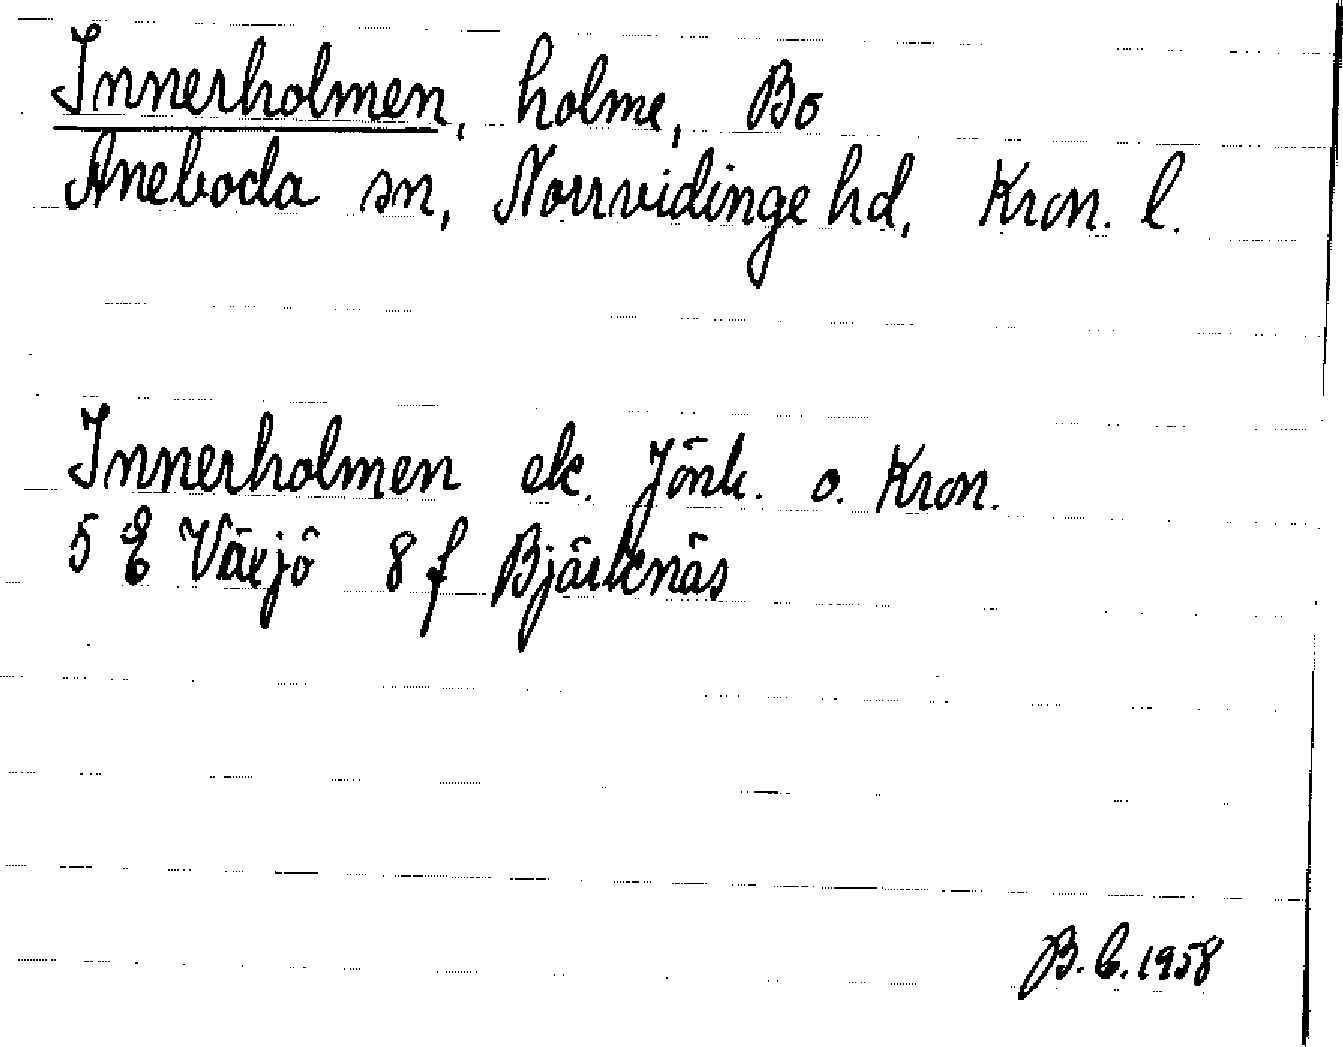 Innerholmen, holme, Bo
Aneboda sn, Norrvidinge hd, Kron. l.
Innerholmen ek. Jönk. o. Kron.
5 E Växjö 8 f Bjärknäs
B. C. 1958